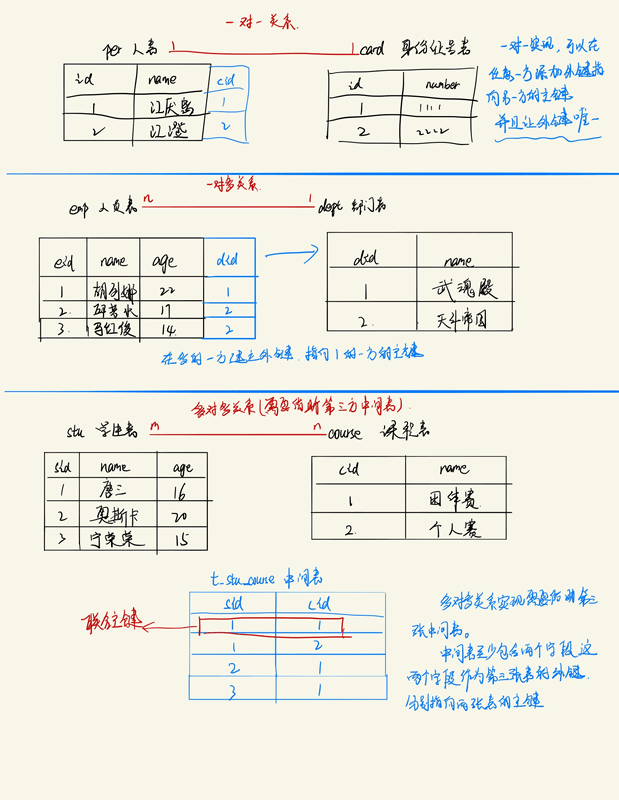 一对一关系.
per 人表 1 1 card 身份证号表
id name cid
1 江厌离 1
2 江澄 2
id number
1 1111
2 2222
一对一实现,可以在
任意一方添加外键指
向另一方的主键
并且让外键唯一
一对多关系.
emp 人员表 n 1 dept 部门表
eid name age did
1 胡列娜 22 1
2. 17 2
3. 马红俊 14. 2
did name
1 武魂殿
2. 天斗帝国
在多的一方建立外键.指向1的一方的主键
多对多关系(需要借助第三方中间表).
stu 学生表 m n course 课程表
sid name age
1 唐三 16
2 奥斯卡 20
3 宁荣荣 15
cid name
1 团体赛
2. 个人赛
t_stu_course 中间表
sid cid
1 1
1 2
2 1
3 1
联合主键
多对多关系实现需要借助第三
张中间表。
中间表至少包含两个字段 这
两个字段作为第三张表的外键.
分别指向两张表的主键